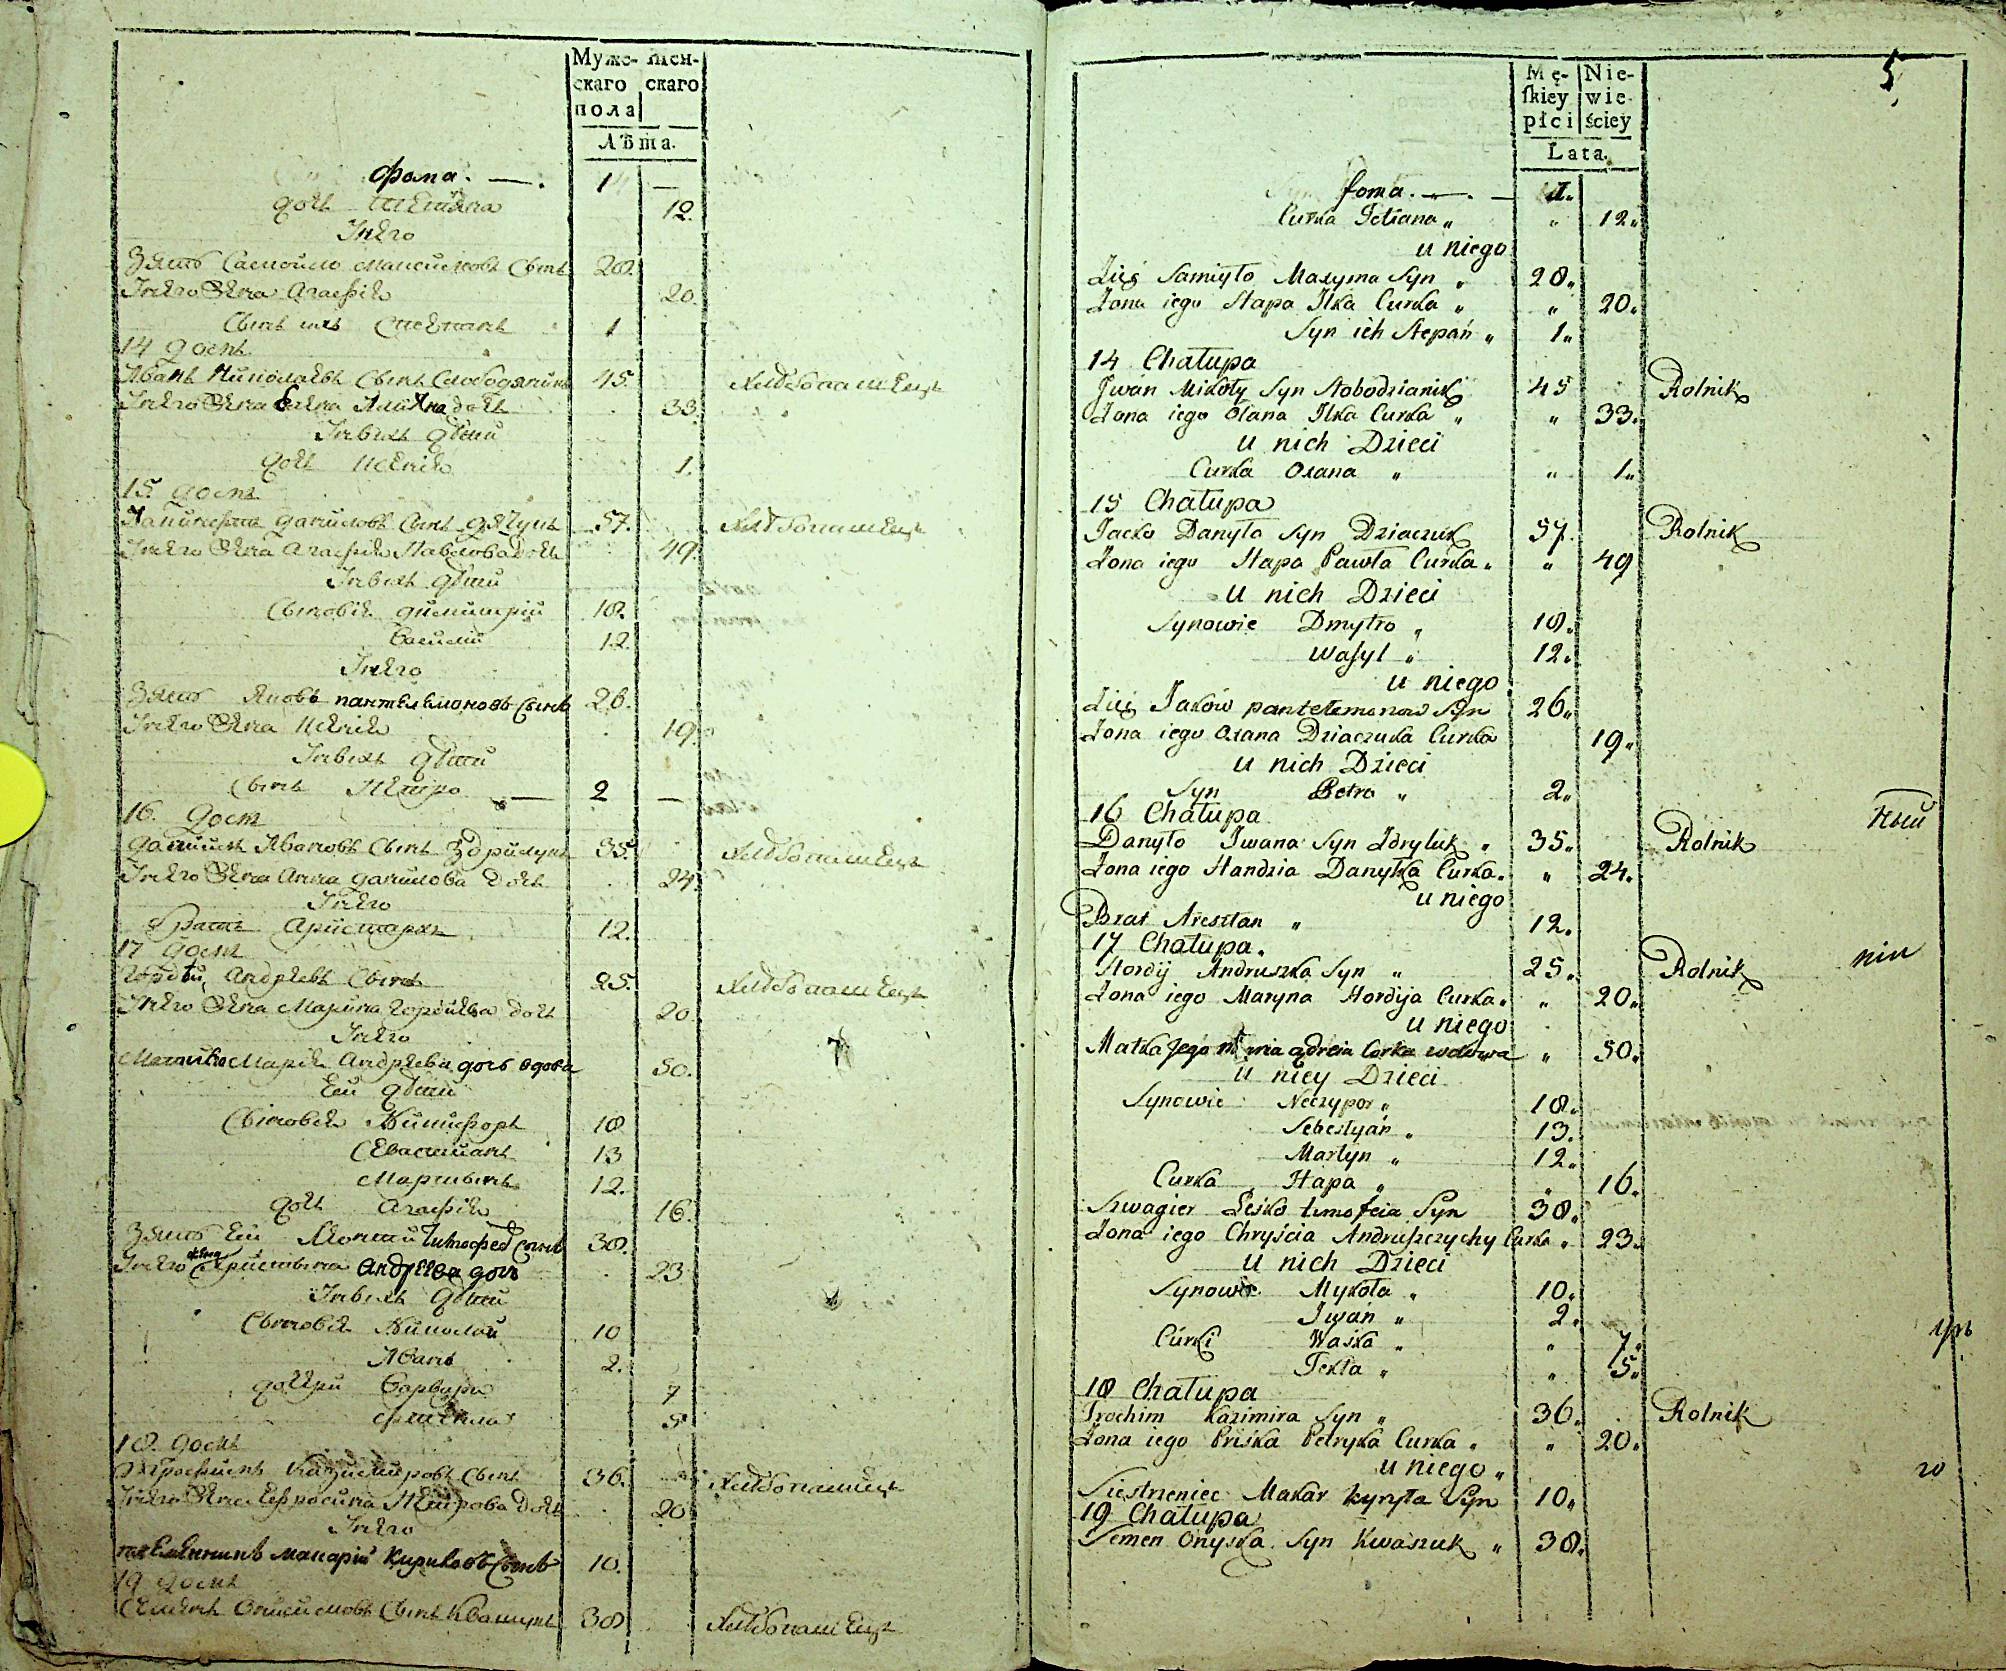 Муже- жен-
скаго скаго
пола
Лѣта.
Фома. — . 1 —
дочь Татіяна 12.
У него
Зять Самойло Максимовъ Сынъ 28.
У него жена Агафія 20.
Сынъ ихъ Степанъ 1
14 домъ
Иванъ Николаевъ Сынъ Слободяникъ 45. Хлѣбопашецъ
У него жена дочь 33.
У нихъ дѣти
дочь Ксенія 1.
15. домъ
Даниловъ Сынъ Дячукъ 57. Хлѣбопашецъ
У него жена Агафія Павлова дочь 49.
У нихъ дѣти
Сыновья Димитрій 18.
Василій 12
У него
Зять Яковъ пантелемоновъ Сынъ 26.
У него жена Ксенія 19.
У нихъ дѣти
Сынъ Петро — 2 —
16. домъ
Данило Ивановъ Сынъ Здрилукъ 35. Хлѣбопашецъ
У него жена Анна Данилова дочь 24.
У него
братъ Аристархъ 12.
17 домъ
Гордѣй Андреевъ Сынъ 25. Хлѣбопашецъ
У него жена Марина Гордіева дочь 20
У него
Матка Марія Андреева дочь вдова 50.
Ей дѣти
Сыновья Никифоръ 18
Севастіанъ 13
Мартынъ 12.
дочь Агафія 16.
Зять Ей Тимофеевъ Сынъ 38.
У него жена Христина Андреева дочь 23
У нихъ дѣти
Сыновья Николай 10
Иванъ 2.
дочери Варвара 7
Фекла 5
18. домъ
Трофимъ Казимировъ Сынъ 36. Хлѣбопашецъ
У него жена Ефросина Петрова дочь 20
У него
племянникъ макарій Кириловъ Сынъ 10.
19 домъ
Семенъ Онисимовъ Сынъ Квашукъ 38 Хлѣбопашецъ
5
Mę- Nie-
ſkiey wie-
płci ściey
Lata.
foma. — . — 1.
Curka Tetiana „ „ 12„
u niego
Zięć Samiyło Maxyma Syn „ 28„
Zona iego Hapa Ilka Curka „ „ 20„
Syn ich Stepań „ 1„
14 Chałupa
Jwan Mikoły Syn Słobodzianik 45 Rolnik
Zona iego Ołana Ilka Curka „ „ 33„
u nich Dzieci
Curka Oxana „ „ 1„
15 Chałupa
Jacko Danyła Syn Dziaczuk 57. Rolnik
Zona iego Hapa Pawła Curka „ „ 49
u nich Dzieci
Synowie Dmytro „ 18„
Waſyl „ 12„
u niego
Zięć Jaków pantełemonow Syn 26„
Zona iego Oxana Dziaczuka Curka 19„
u nich Dzieci
Syn Petro „ 2„
16 Chałupa
ный
Danyło Jwana Syn Zdryluk „ 35„ Rolnik
Zona iego Handzia Danyłka Curka „ „ 24„
u niego
Brat Aresztan „ 12„
17 Chałupa.
Hordij Andruszka Syn „ 25„ Rolnik
Zona iego Maryna Hordija Curka „ „ 20„
u niego
Matka Jego Corka wdowa „ 50„
u niey Dzieci
Synowie Neczypor „ 18„
Sebestyán „ 13„
Martyn „ 12„
Curka Hapa „ „ 16„
Szwagier Leśko tymofeia Syn 38„
Zona iego Chryścia Andruſzczychy Curka „ 23„
u nich Dzieci
Synowie Mykoła „ 10„
Jwań „ 2„
Cúrki Waśka „ „ 7„
Tekla „ „ 5„
18 Chałupa
Trochim Kazimira Syn „ 36„ Rolnik
Zona iego Priśka Petryka Curka „ „ 20„
u niego „
Siestrzeniec Makar kyryła Syn 10„
19 Chałupa
Semen Onyska Syn Kwaszuk „ 38„